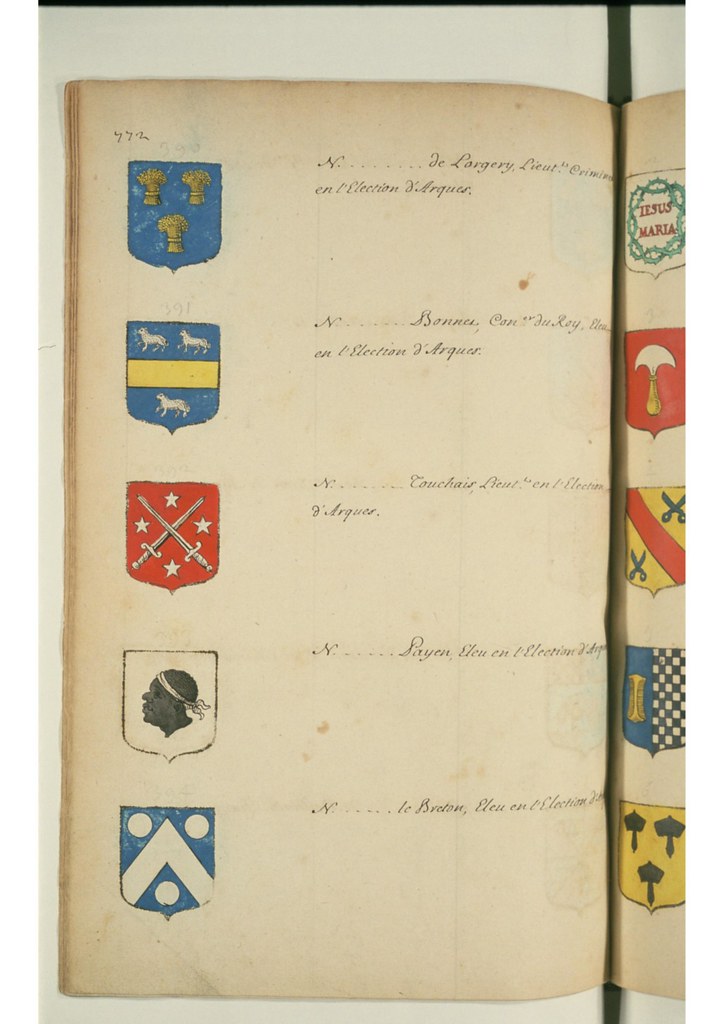 772
N. . . . . . . . . de Largery, Lieut.ᵗ Crimin
en l'Election d'Arques.
N. . . . . . . Bonnet, Con.er du Roy, Eleu
en l'Election d'Arques.
N. . . . . . . Touchais, Lieut.ᵗ en l'Election
d'Arques.
N. . . . . . Payen, Eleu en l'Election d'Arq
N. . . . . . le Breton, Eleu en l'Election d'
IESUS
MARIA